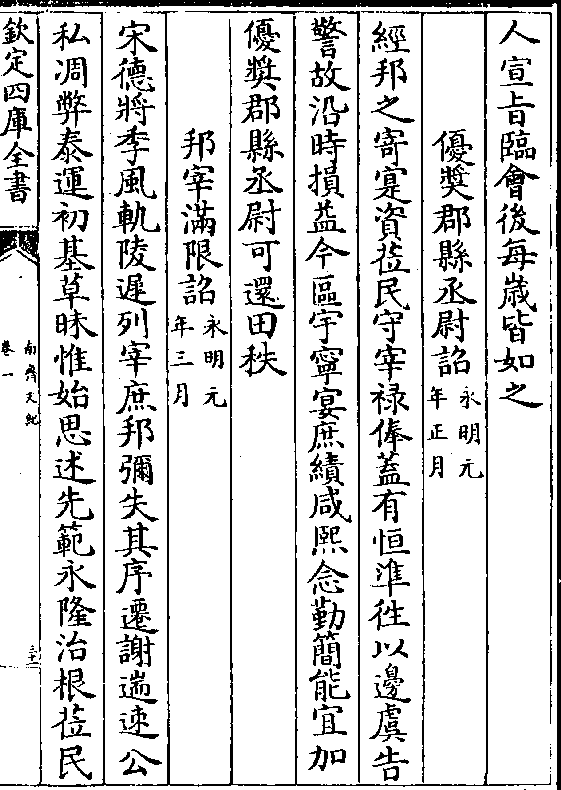 人宣旨臨會後每嵗皆如之
優奬郡縣丞尉詔永明元年正月
經邦之寄寔資莅民守宰禄俸蓋有恒準徃以邊虞告
警故沿時損益今區宇寧宴庶績咸熙念勤簡能宜加
優奬郡縣丞尉可還田秩
邦宰滿限詔永明元年三月
宋德將季風軌陵遲列宰庶邦彌失其序遷謝遄速公
私凋弊泰運初基草昧惟始思述先範永隆治根莅民
欽定四庫全書
南齊文紀
卷一
三十二